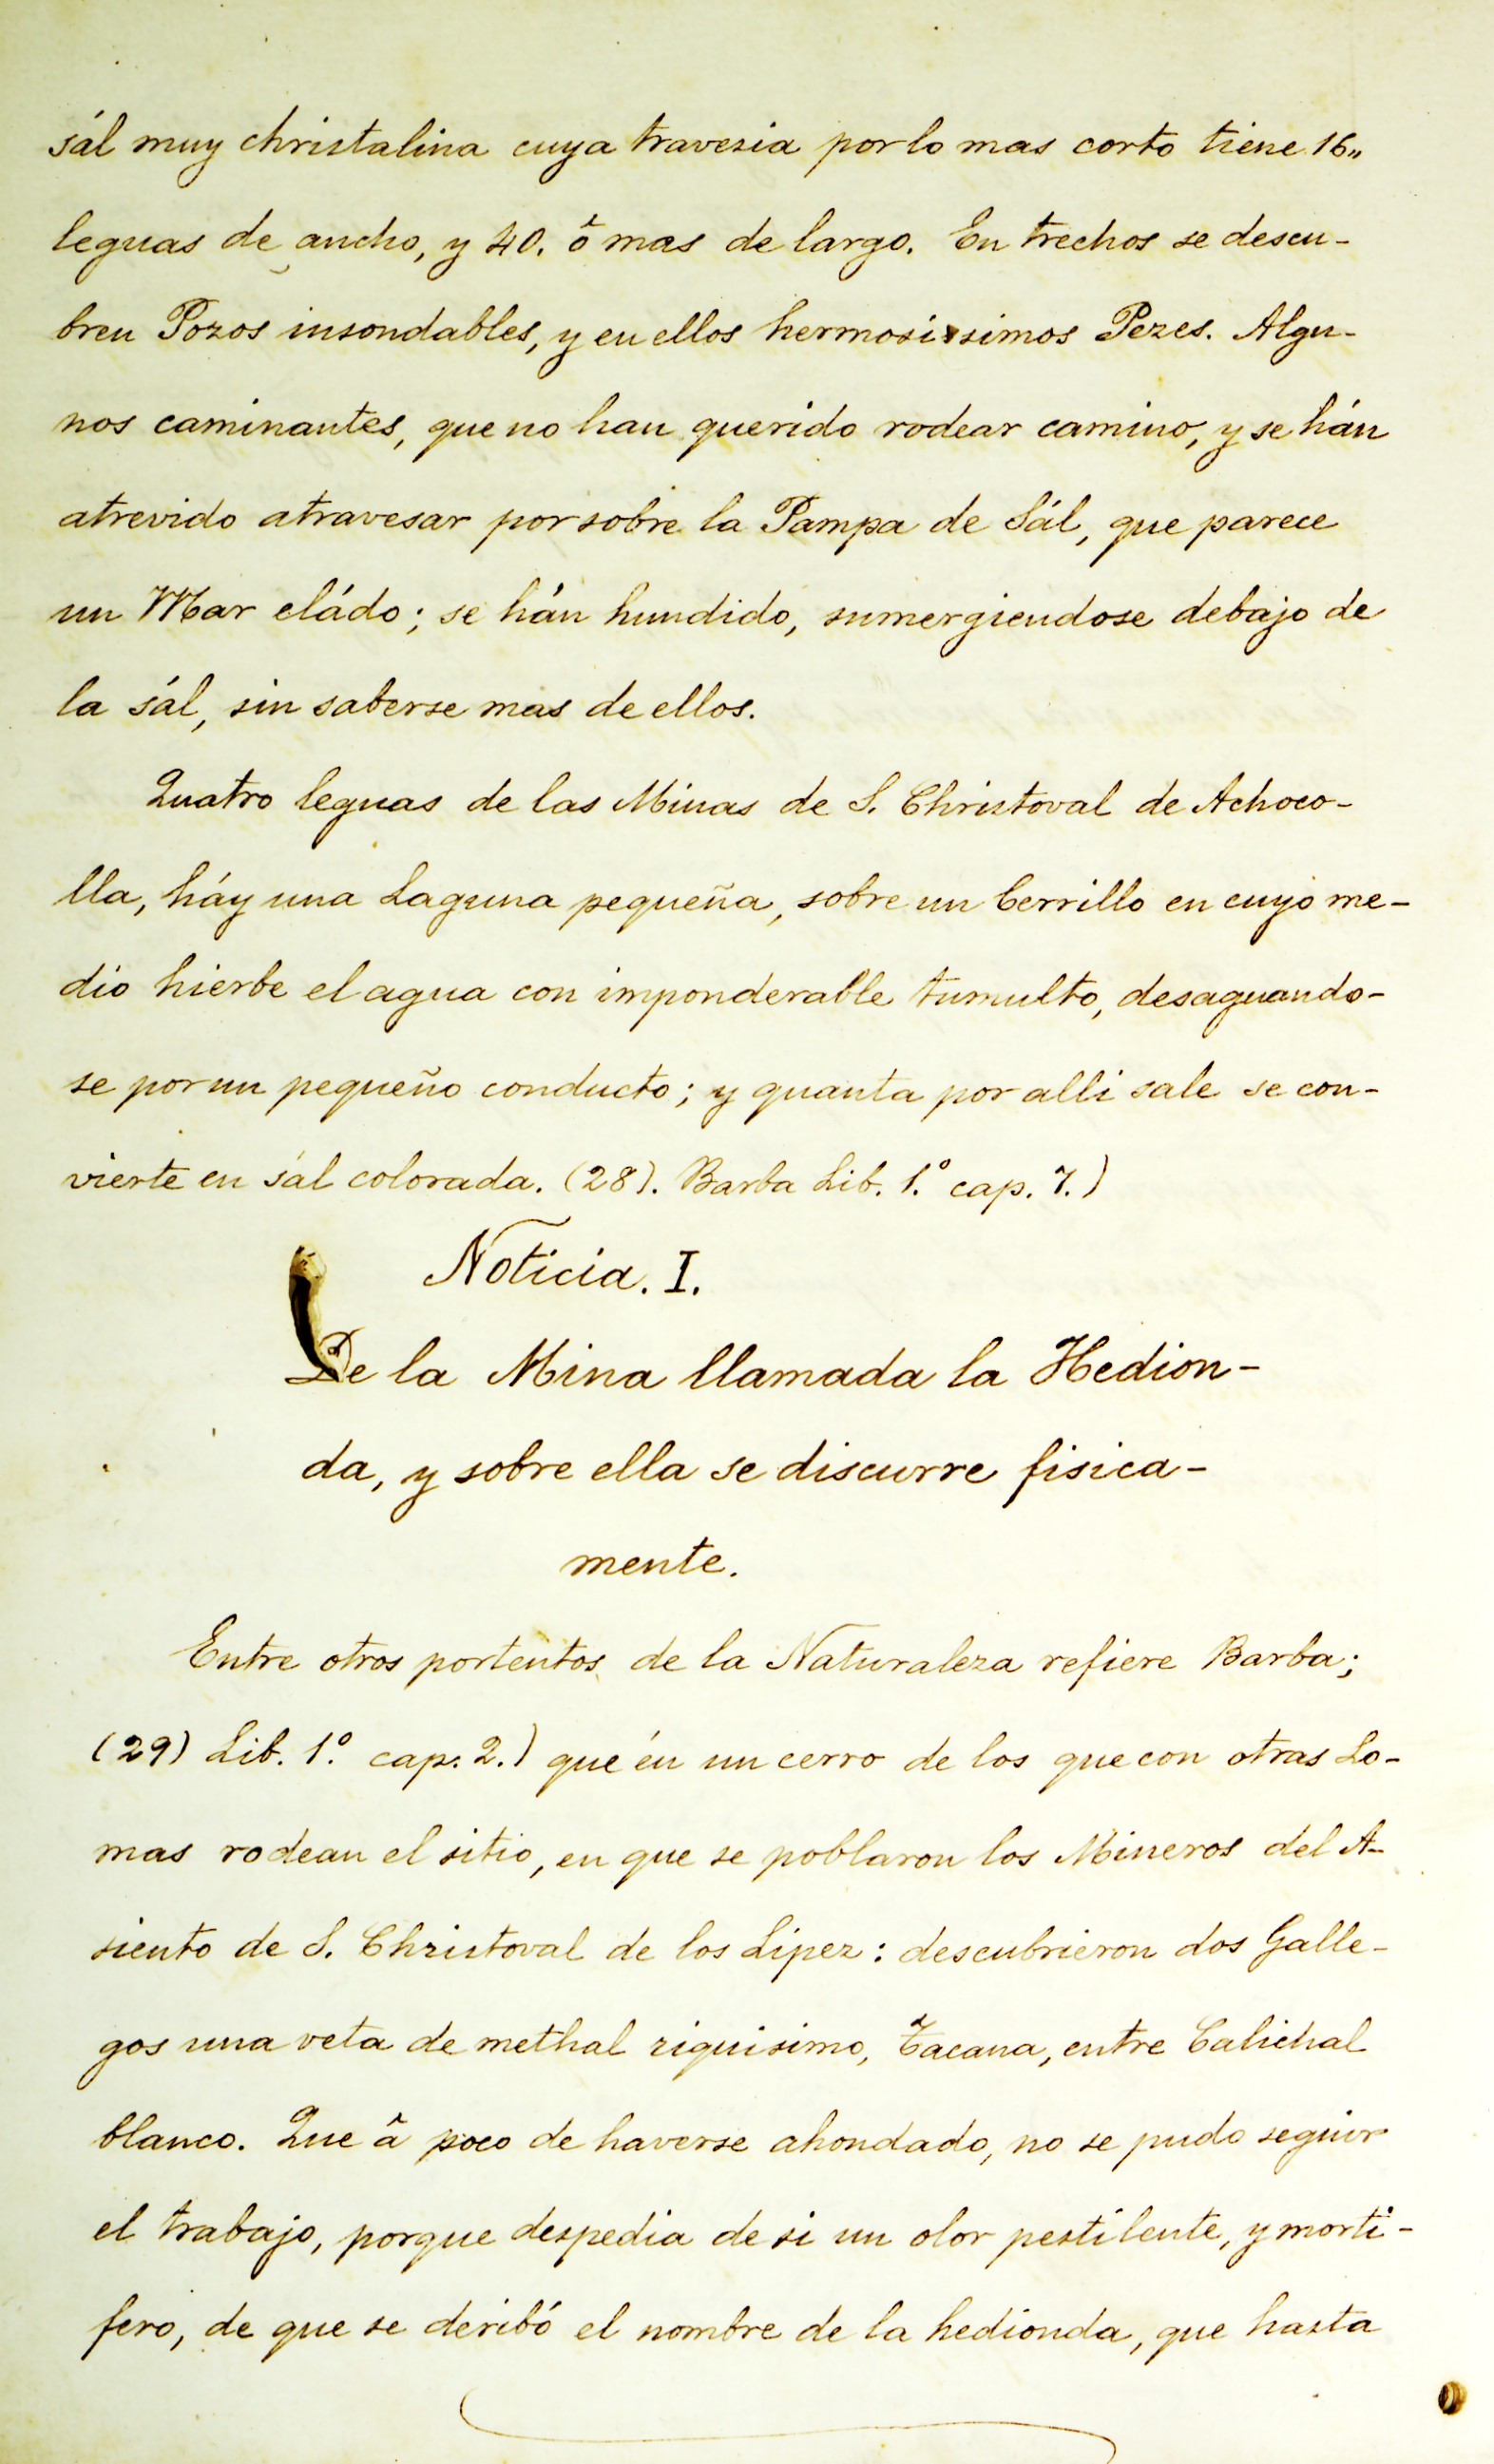 sál muy christalina cuya travesia por lo mas corto tiene 16"
leguas de ancho, y 40. ô mas de largo. En trechos se descu-
bren Pozos insondables, y en ellos hermosissimos Pezes. Algu-
nos caminantes, que no han querido rodear camino, y se hán
atrevido atravesar por sobre la Pampa de Sál, que parece
un Mar eládo; se hán hundido, sumergiendose debajo de
la sál, sin saberse mas de ellos.
Quatro leguas de las Minas de S. Christoval de Achoco-
lla, háy una Laguna pequeña, sobre un Cerrillo en cuyo me-
dio hierbe el agua con imponderable tumulto, desaguando-
se por un pequeño conducto; y quanta por alli sale se con-
vierte en sál colorada. (28). Barba Lib. 1.º cap. 7.)
Noticia. I.
De la Mina llamada la Hedion-
da, y sobre ella se discurre fisica-
mente.
Entre otros portentos de la Naturaleza refiere Barba;
(29) Lib. 1.º cap. 2.) que én un cerro de los que con otras Lo-
mas rodean el sitio, en que se poblaron los Mineros del A-
siento de S. Christoval de los Lipez: descubrieron dos Galle-
gos una veta de methal riquisimo, Tacana, entre Calichal
blanco. Que â poco de haverse ahondado, no se pudo seguir
el trabajo, porque despedia de si un olor pestilente, y morti-
fero, de que se deribó el nombre de la hedionda, que hasta